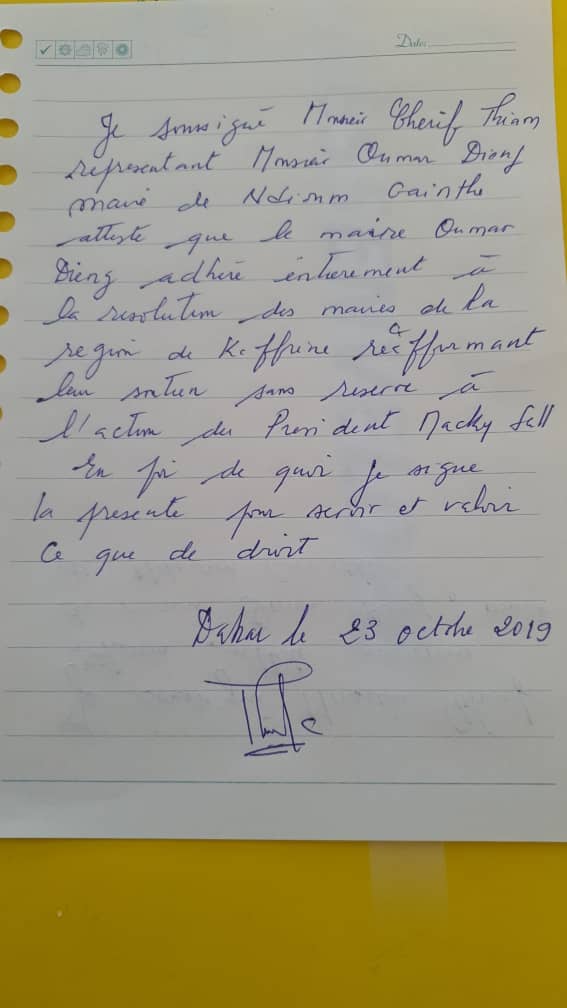 Date:
Je soussigné Monsieur Cherif Thiam
representant Monsieur Oumar Dieng
maire de Ndioum Gainthe
atteste que le maire Oumar
Dieng adhère entierement à
la resolution des maires de la
region de Kaffrine réaffirmant
leur soutien sans reserve à
l'action du President Macky Sall
En foi de quoi je signe
la presente pour servir et valoir
ce que de droit
Dakar le 23 octobre 2019